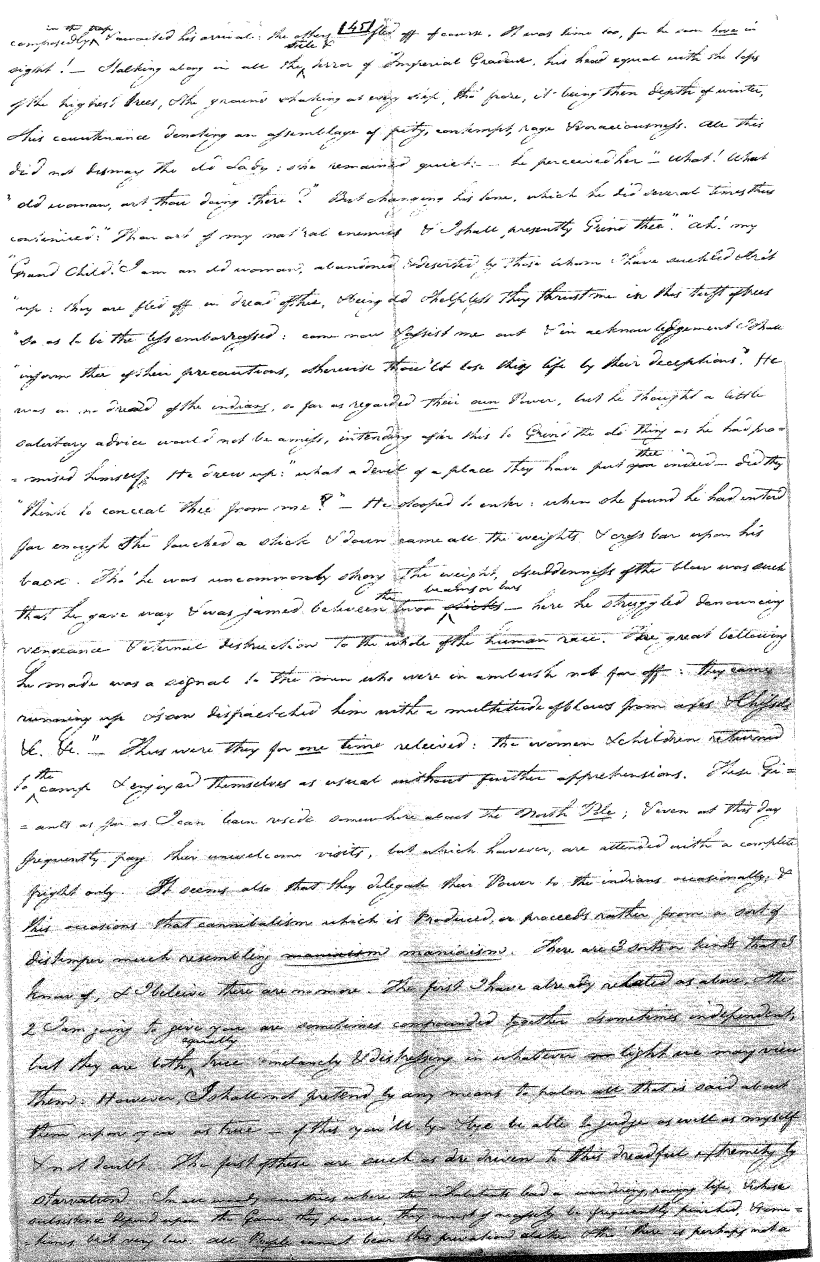 in the trap
composedly & awaited his arrival: the others [45] fled off of course. It was time too, for he soon hove in
state &
sight! — Stalking along in all the terror of Imperial Grandeur, his head equal with the tops
of the highest trees, & the ground shaking at every step, tho' froze, it being then depth of winter,
& his countenance denoting an assemblage of pity, contempt, rage & voraciousness. All this
did not dismay the old Lady: she remained quiet: — he perceived her — "What! What
"old woman, art thou doing there?" But changing his tone, which he did several times thus
continued: "Thou art of my natural enemies & I shall presently Grind thee". "Ah! my
"Grand Child! I am an old woman, abandoned & deserted by those whom I have suckled & bro't
"up: they are fled off in dread of thee, & being old & helpless they thrust me in this tuft of trees
"so as to be the less embarrassed: come now & assist me out & in acknowledgement I shall
"inform thee of their precautions, otherwise thou'lt lose thy life by their deceptions". He
was in no dread of the indians, so far as regarded their own Power, but he thought a little
salutary advice would not be amiss, intending after this to Grind the old thing as he had pro=
thee
=mised himself. He drew up: "what a devil of a place they have put you indeed — did they
"think to conceal thee from me?" — He stooped to enter: when she found he had entered
far enough she touched a stick & down came all the weights & cross bar upon his
back. Tho' he was uncommonly strong the weight, & suddenness of the blow was such
the beams or bars
that he gave way & was jamed between two sticks — here he struggled denouncing
vengeance & eternal destruction to the whole of the human race. The great bellowing
he made was a signal to the men who were in ambush not far off: they came
running up & soon dispatched him with a multitude of blows from axes & Chissels
&c. &c." — Thus were they for one time relieved: the women & children returned
the
to camp & enjoyed themselves as usual without further apprehensions. These Gi=
=ants as far as I can learn reside somewhere about the North Pole; & even at this day
frequently pay their unwelcome visits, but which however, are attended with a complete
fright only. It seems also that they delegate their Power to the indians occasionally; &
this occasions that cannibalism which is Produced, or proceeds rather from a sort of
distemper much resembling maniaism maniaism. There are 3 sorts or kinds that I
know of, & I beleive there are no more. The first I have already related as above, & the
2 I am going to give you are sometimes compounded together & sometimes independent;
equally
but they are both true melancy & distressing in whatever light we may view
them: However, I shall not pretend by any means to palm all that is said about
them upon you as true — of this you'll by & bye be able to judge as well as myself
& not doubt. The first of these are such as are driven to this dreadful extremity by
starvation. In all woody countries where the inhabitants lead a wandering, roving life, & whose
subsistence depend upon the Game they procure, they must of necessity be frequently pinched, & some=
=times but very low. All People cannot bear this privation alike & there is perhaps not a